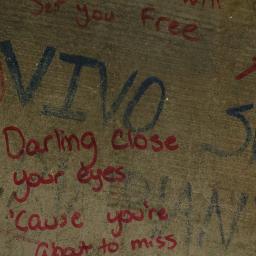 will
Set you free
VIVO
S
Darling close
your eyes
'Cause you're
about to miss